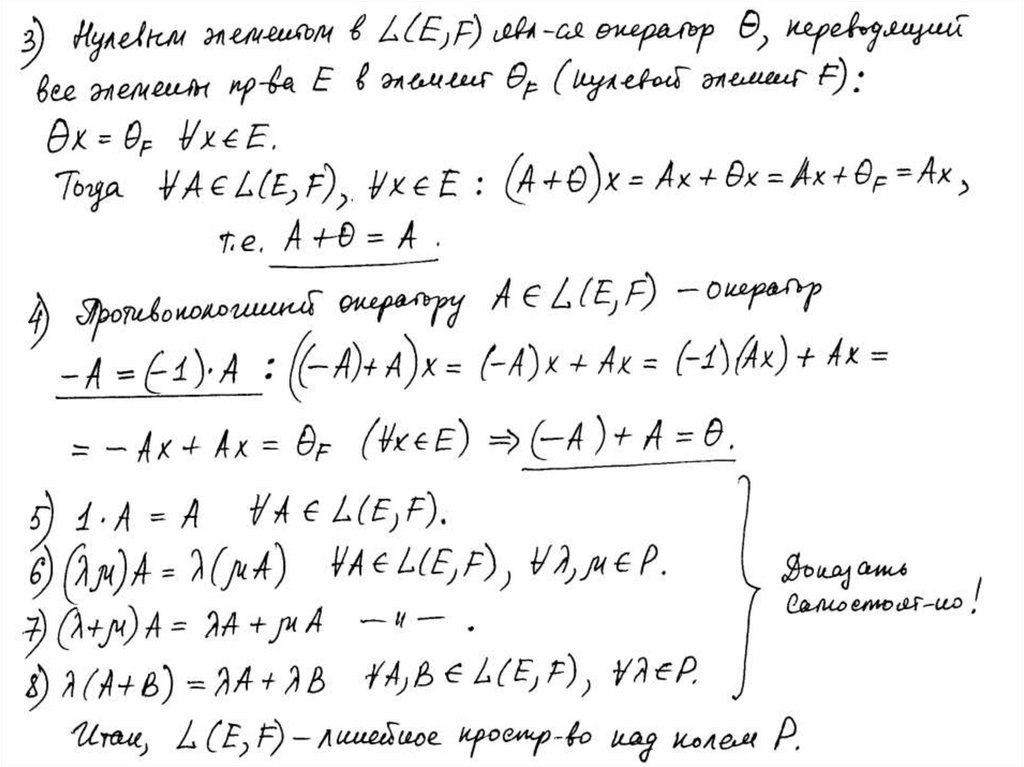 3) Нулевым элементом в L(E,F) явл-ся оператор θ, переводящий
все элементы пр-ва E в элемент θ_F (нулевой элемент F):
θx = θ_F ∀x∈E.
Тогда ∀A∈L(E,F), ∀x∈E : (A+θ)x = Ax+θx = Ax+θ_F = Ax,
т.е. A+θ = A.
4) Противоположный оператору A∈L(E,F) – оператор
–A = (–1)·A : ((–A)+A)x = (–A)x + Ax = (–1)(Ax) + Ax =
= – Ax + Ax = θ_F (∀x∈E) ⇒ (–A)+A = θ.
5) 1·A = A ∀A∈L(E,F).
6) (λμ)A = λ(μA) ∀A∈L(E,F), ∀λ,μ∈P.
7) (λ+μ)A = λA + μA —"— .
8) λ(A+B) = λA + λB ∀A,B∈L(E,F), ∀λ∈P.
Доказать
самостоят-но!
Итак, L(E,F) – линейное простр-во над полем P.